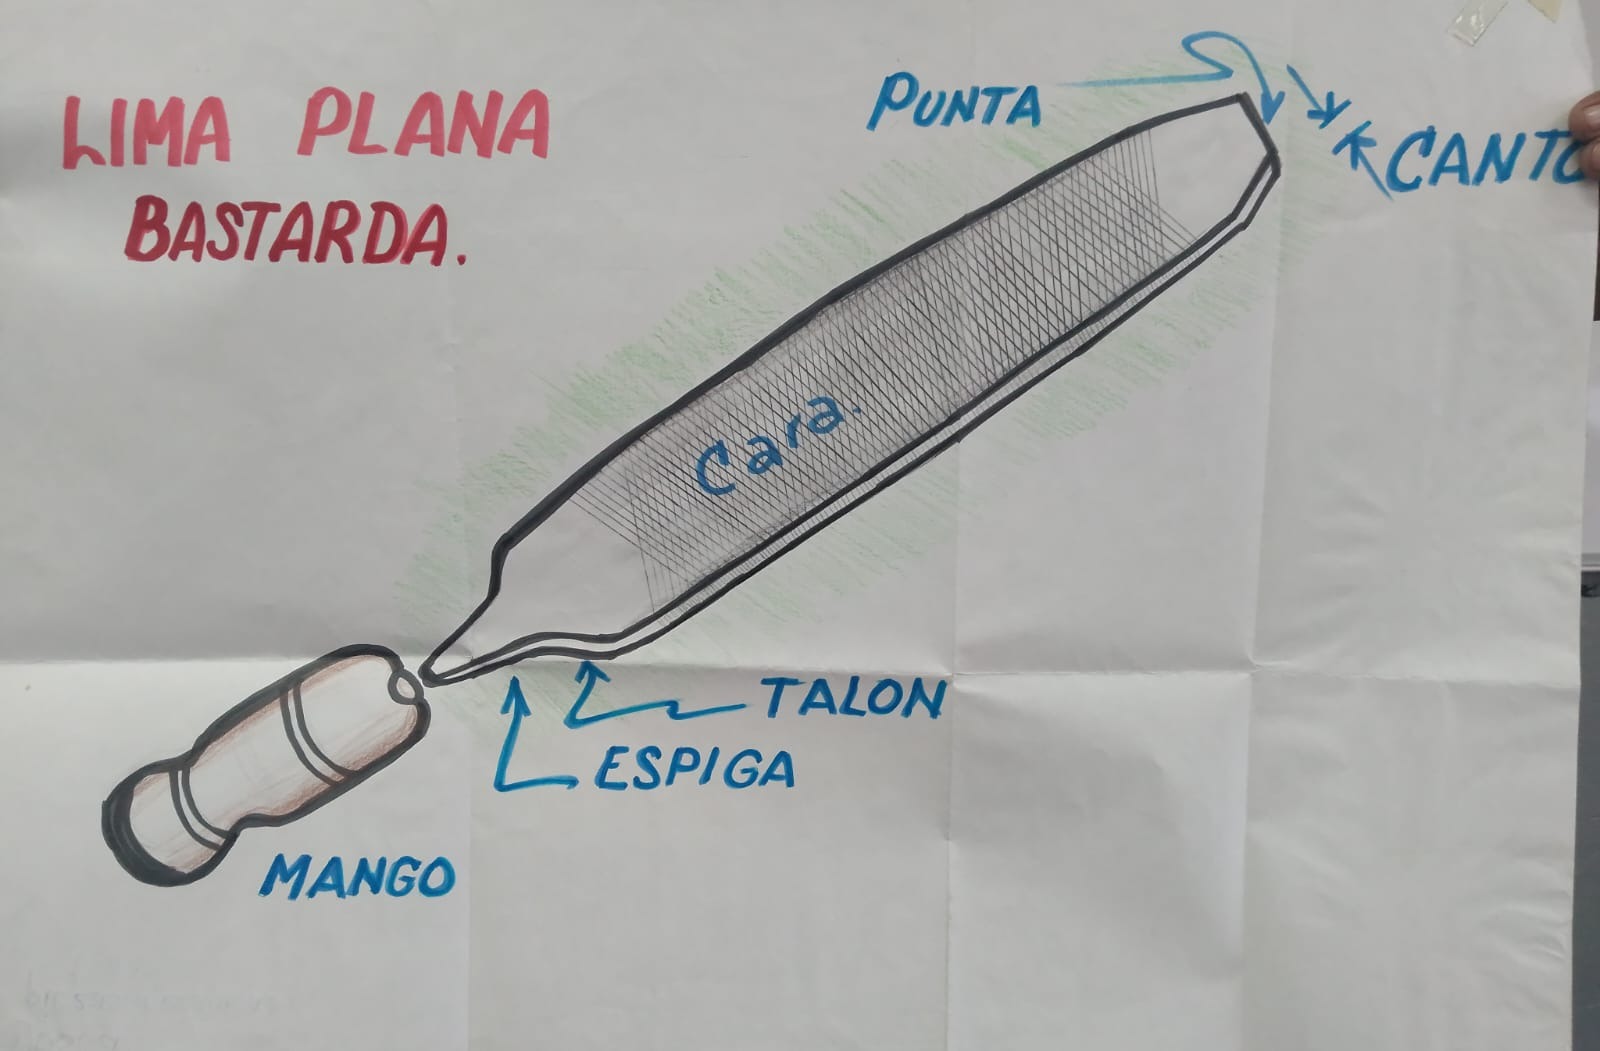 LIMA PLANA
BASTARDA.
PUNTA
CANTO
Cara.
TALON
ESPIGA
MANGO